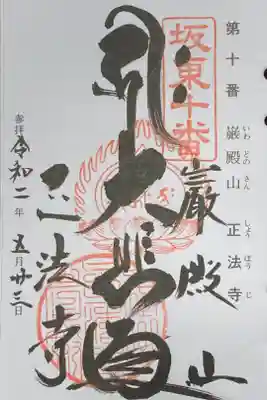 第十番 巌殿山 正法寺
いわ どの さん しょう ぼう じ
坂東十番
巖殿山
大悲
正法寺
参拝 令和二年五月廿三日